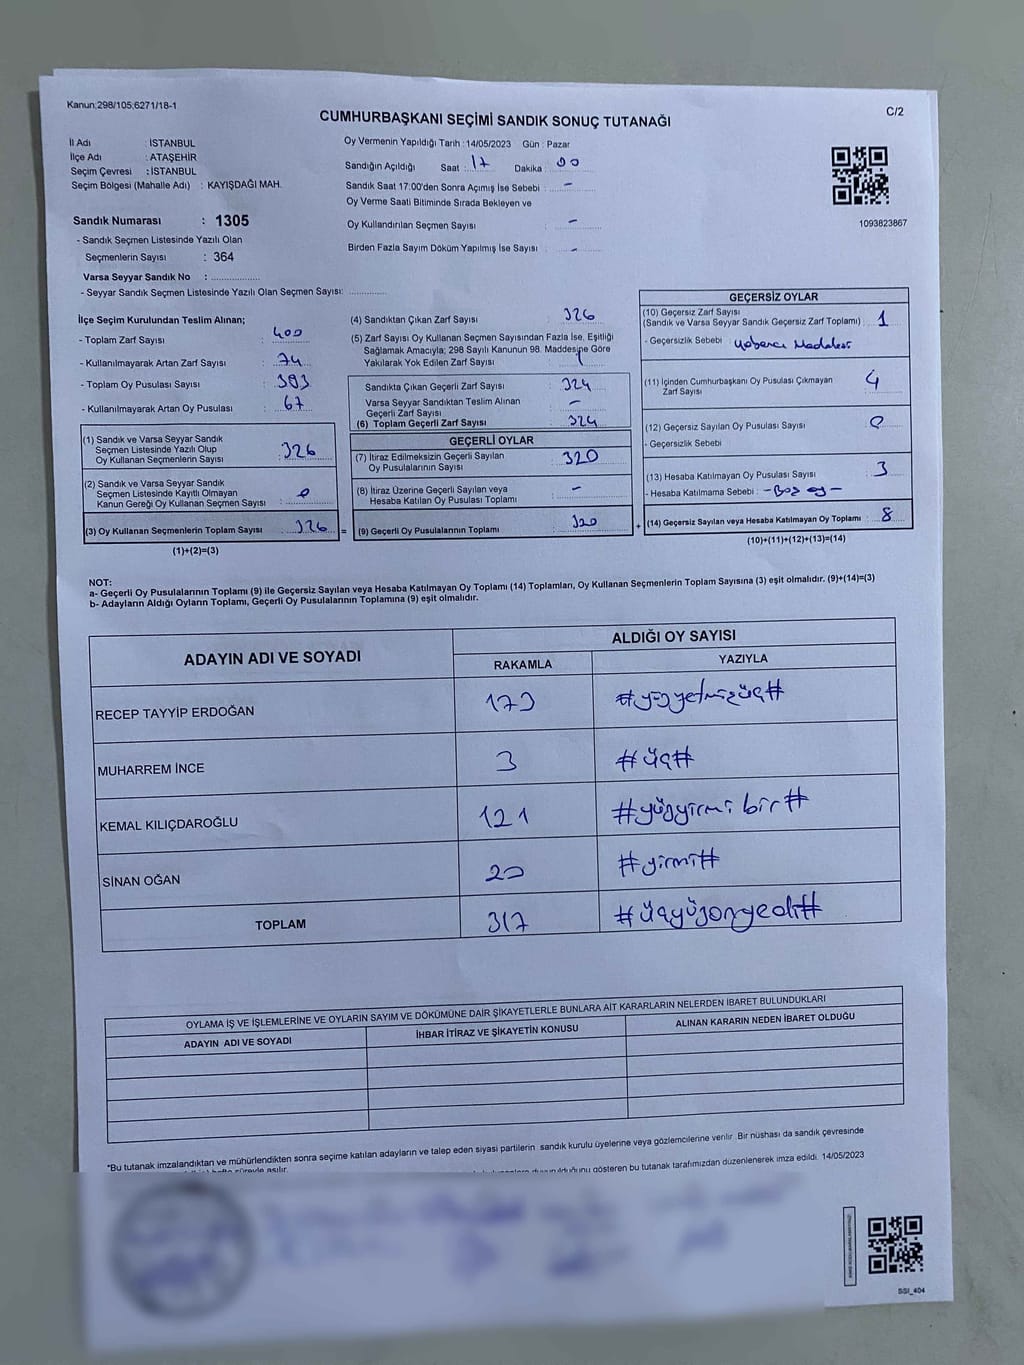 Kanun;298/105;6271/18-1
C/2
CUMHURBAŞKANI SEÇİMİ SANDIK SONUÇ TUTANAĞI
İl Adı : İSTANBUL
İlçe Adı : ATAŞEHİR
Seçim Çevresi : İSTANBUL
Seçim Bölgesi (Mahalle Adı) : KAYIŞDAĞI MAH.
Sandık Numarası : 1305
- Sandık Seçmen Listesinde Yazılı Olan
Seçmenlerin Sayısı : 364
Varsa Seyyar Sandık No :
- Seyyar Sandık Seçmen Listesinde Yazılı Olan Seçmen Sayısı:
Oy Vermenin Yapıldığı Tarih : 14/05/2023 Gün : Pazar
Sandığın Açıldığı Saat : 17 Dakika : 00
Sandık Saat 17:00'den Sonra Açımış İse Sebebi : -
Oy Verme Saati Bitiminde Sırada Bekleyen ve
Oy Kullandırılan Seçmen Sayısı : -
Birden Fazla Sayım Döküm Yapılmış İse Sayısı : -
1093823867
İlçe Seçim Kurulundan Teslim Alınan;
- Toplam Zarf Sayısı : 400
- Kullanılmayarak Artan Zarf Sayısı : 74
- Toplam Oy Pusulası Sayısı : 393
- Kullanılmayarak Artan Oy Pusulası : 67
(1) Sandık ve Varsa Seyyar Sandık
Seçmen Listesinde Yazılı Olup
Oy Kullanan Seçmenlerin Sayısı : 326
(2) Sandık ve Varsa Seyyar Sandık
Seçmen Listesinde Kayıtlı Olmayan
Kanun Gereği Oy Kullanan Seçmen Sayısı : 0
(3) Oy Kullanan Seçmenlerin Toplam Sayısı : 326 =
(1)+(2)=(3)
(4) Sandıktan Çıkan Zarf Sayısı : 326
(5) Zarf Sayısı Oy Kullanan Seçmen Sayısından Fazla İse, Eşitliği
Sağlamak Amacıyla; 298 Sayılı Kanunun 98. Maddesine Göre
Yakılarak Yok Edilen Zarf Sayısı :
Sandıkta Çıkan Geçerli Zarf Sayısı : 324
Varsa Seyyar Sandıktan Teslim Alınan
Geçerli Zarf Sayısı : -
(6) Toplam Geçerli Zarf Sayısı : 324
GEÇERLİ OYLAR
(7) İtiraz Edilmeksizin Geçerli Sayılan
Oy Pusulalarının Sayısı : 320
(8) İtiraz Üzerine Geçerli Sayılan veya
Hesaba Katılan Oy Pusulası Toplamı : -
(9) Geçerli Oy Pusulalarının Toplamı : 320 +
GEÇERSİZ OYLAR
(10) Geçersiz Zarf Sayısı
(Sandık ve Varsa Seyyar Sandık Geçersiz Zarf Toplamı) : 1
- Geçersizlik Sebebi : Yabancı Maddeler
(11) İçinden Cumhurbaşkanı Oy Pusulası Çıkmayan
Zarf Sayısı : 4
(12) Geçersiz Sayılan Oy Pusulası Sayısı : 0
- Geçersizlik Sebebi
(13) Hesaba Katılmayan Oy Pusulası Sayısı : 3
- Hesaba Katılmama Sebebi : - Boş oy -
(14) Geçersiz Sayılan veya Hesaba Katılmayan Oy Toplamı : 8
(10)+(11)+(12)+(13)=(14)
NOT:
a- Geçerli Oy Pusulalarının Toplamı (9) ile Geçersiz Sayılan veya Hesaba Katılmayan Oy Toplamı (14) Toplamları, Oy Kullanan Seçmenlerin Toplam Sayısına (3) eşit olmalıdır. (9)+(14)=(3)
b- Adayların Aldığı Oyların Toplamı, Geçerli Oy Pusulalarının Toplamına (9) eşit olmalıdır.
ADAYIN ADI VE SOYADI
ALDIĞI OY SAYISI
RAKAMLA YAZIYLA
RECEP TAYYİP ERDOĞAN 173 #yüzyetmişüç#
MUHARREM İNCE 3 #üç#
KEMAL KILIÇDAROĞLU 121 #yüzyirmi bir#
SİNAN OĞAN 20 #yirmi#
TOPLAM 317 #üçyüzonyedi#
OYLAMA İŞ VE İŞLEMLERİNE VE OYLARIN SAYIM VE DÖKÜMÜNE DAİR ŞİKAYETLERLE BUNLARA AİT KARARLARIN NELERDEN İBARET BULUNDUKLARI
ADAYIN ADI VE SOYADI İHBAR İTİRAZ VE ŞİKAYETİN KONUSU ALINAN KARARIN NEDEN İBARET OLDUĞU
*Bu tutanak imzalandıktan ve mühürlendikten sonra seçime katılan adayların ve talep eden siyasi partilerin sandık kurulu üyelerine veya gözlemcilerine verilir. Bir nüshası da sandık çevresinde
hafta süreyle asılır. duyurulduğunu gösteren bu tutanak tarafımızdan düzenlenerek imza edildi. 14/05/2023
SSI_404